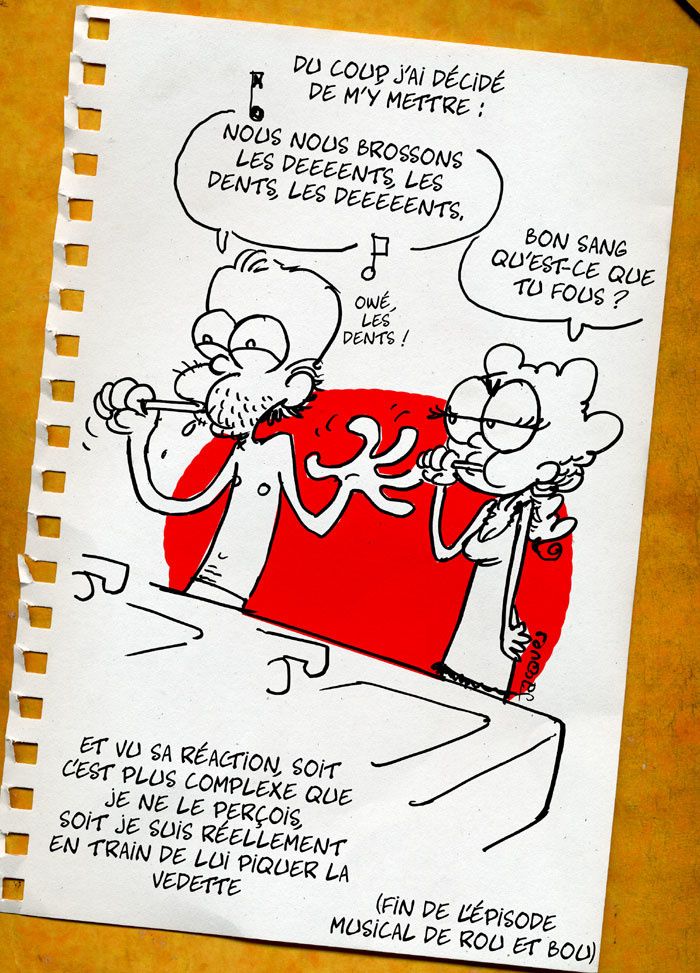 DU COUP, J'AI DÉCIDÉ
DE M'Y METTRE :
NOUS NOUS BROSSONS
LES DEEEENTS, LES
DENTS, LES DEEEEENTS.
BON SANG
QU'EST-CE QUE
TU FOUS ?
OWÉ,
LES
DENTS !
Jacques
ET VU SA RÉACTION, SOIT
C'EST PLUS COMPLEXE QUE
JE NE LE PERÇOIS,
SOIT JE SUIS RÉELLEMENT
EN TRAIN DE LUI PIQUER LA
VEDETTE
(FIN DE L'ÉPISODE
MUSICAL DE ROU ET BOU)